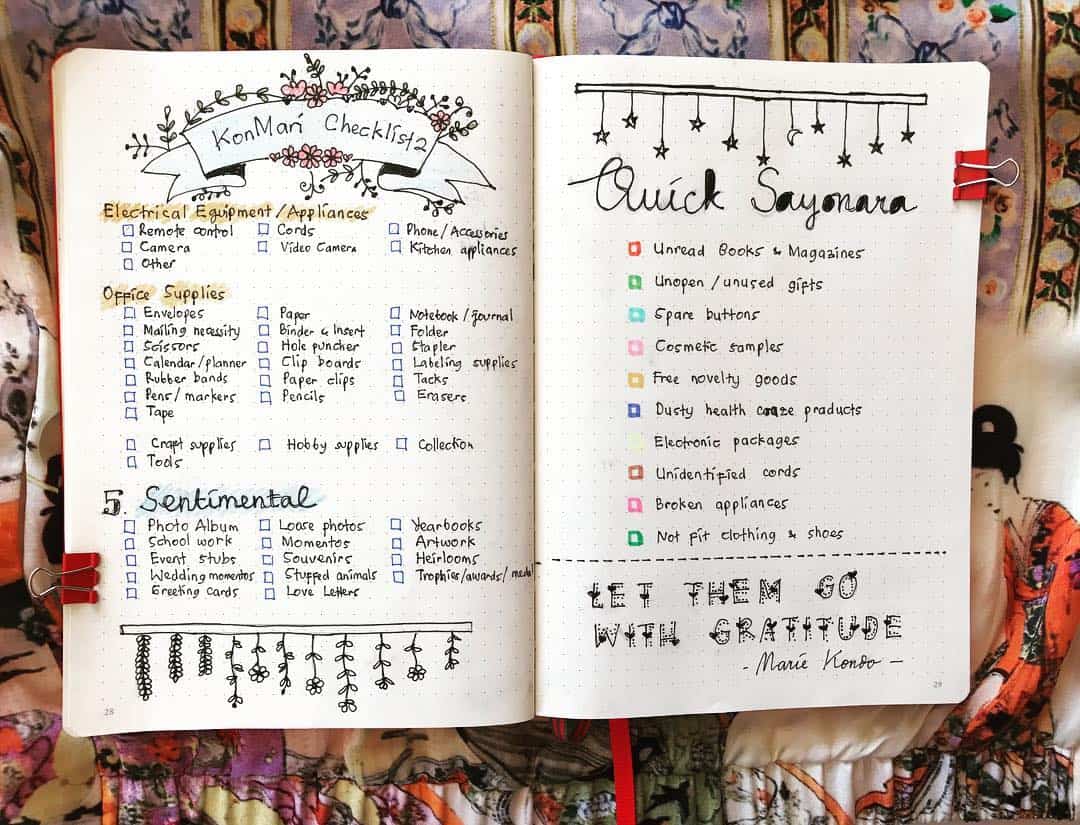 KonMari Checklist 2
Electrical Equipment / Appliances
Remote control Cords Phone / Accessories
Camera Video Camera Kitchen appliances
Other
Office Supplies
Envelopes Paper Notebook / journal
Mailing necessity Binder & Insert Folder
Scissors Hole puncher Stapler
Calendar / planner Clip boards Labeling supplies
Rubber bands Paper clips Tacks
Pens / markers Pencils Erasers
Tape
Craft supplies Hobby supplies Collection
Tools
5. Sentimental
Photo Album Loose photos Yearbooks
School work Momentos Artwork
Event stubs Souvenirs Heirlooms
Wedding momentos Stuffed animals Trophies / awards / medal
Greeting cards Love Letters
28
Quick Sayonara
Unread Books & Magazines
Unopen / unused gifts
Spare buttons
Cosmetic samples
Free novelty goods
Dusty health craze products
Electronic packages
Unidentified cords
Broken appliances
Not fit clothing & shoes
LET THEM GO
WITH GRATITUDE
- Marie Kondo -
29